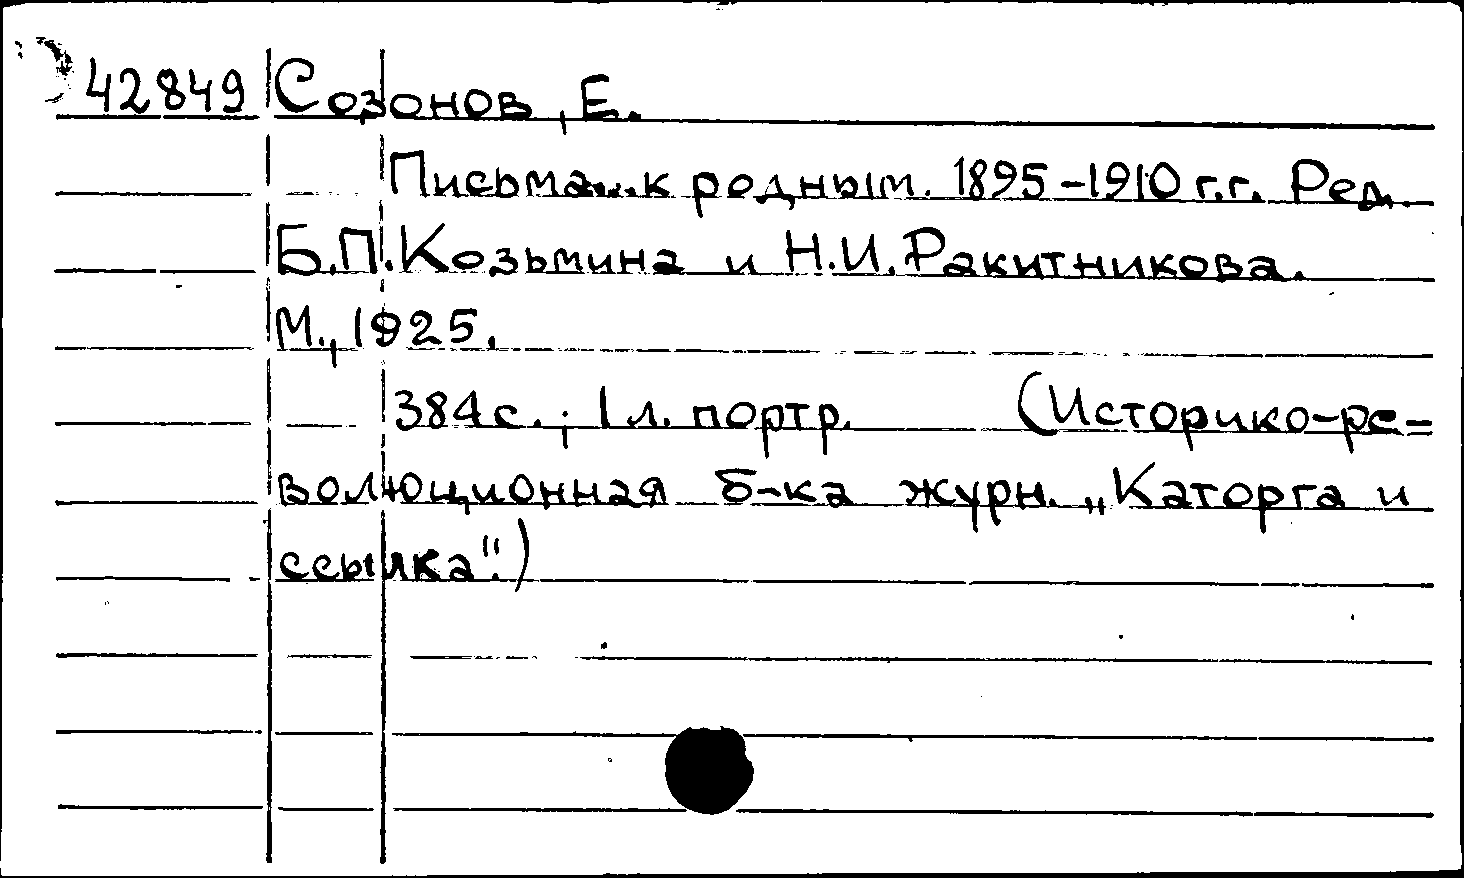 42849 Созонов, Е.
Письма... к родным. 1895-1910 г.г. Ред.
Б.П. Козьмина и Н.И. Ракитникова.
М., 1925.
384 с.; 1 л. портр. (Историко-ре=
волюционная б-ка журн. „Каторга и
ссылка".)